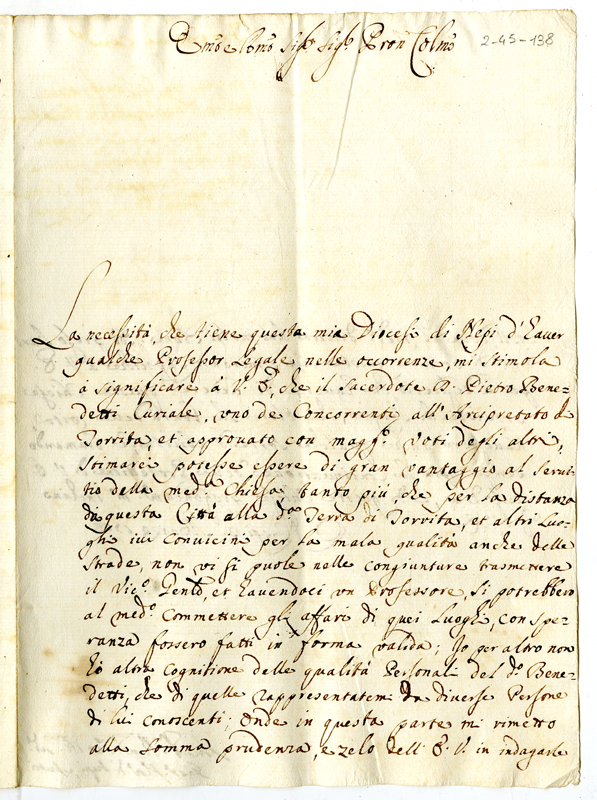 Emo e Rmo Sigr. Sigr. Pron Colmo
2-45-138
La necessità, che tiene questa mia Diocesi di Nepi d'hauer
qualche Professor legale nelle occorrenze, mi stimola
à significare à V. E., che il Sacerdote D. Pietro Bene-
detti Curiale, vno de Concorrenti all'Arcipretato di
Torrita, et approuato con maggr. voti degli altri,
stimarei potesse essere di gran vantaggio al serui-
tio della meda. Chiesa, tanto più, che per la distanza
da questa Città alla da. Terra di Torrita, et altri Luo-
ghi iui conuicini per la mala qualità anche delle
strade, non vi si puole nelle congiunture trasmettere
il Vico. Genle, et hauendoci vn Professore, si potrebbero
al medo. commettere gli affari di quei Luoghi, con spe-
ranza fossero fatti in forma valida; Io per altro non
hò altra cognitione delle qualità Personali del do. Bene-
detti, che di quelle rappresentatemi da diuerse Persone
di lui conoscenti; Onde in questa parte mi rimetto
alla somma prudenza, e zelo dell'E. V. in indagarle